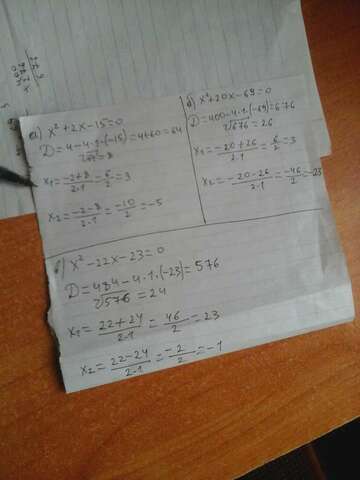 а) x² + 2x - 15 = 0
D = 4 - 4·1·(-15) = 4 + 60 = 64
√64 = 8
x₁ = (-2+8)/(2·1) = 6/2 = 3
x₂ = (-2-8)/(2·1) = -10/2 = -5
б) x² + 20x - 69 = 0
D = 400 - 4·1·(-69) = 676
√676 = 26
x₁ = (-20+26)/(2·1) = 6/2 = 3
x₂ = (-20-26)/(2·1) = -46/2 = -23
в) x² - 22x - 23 = 0
D = 484 - 4·1·(-23) = 576
√576 = 24
x₁ = (22+24)/(2·1) = 46/2 = 23
x₂ = (22-24)/(2·1) = -2/2 = -1